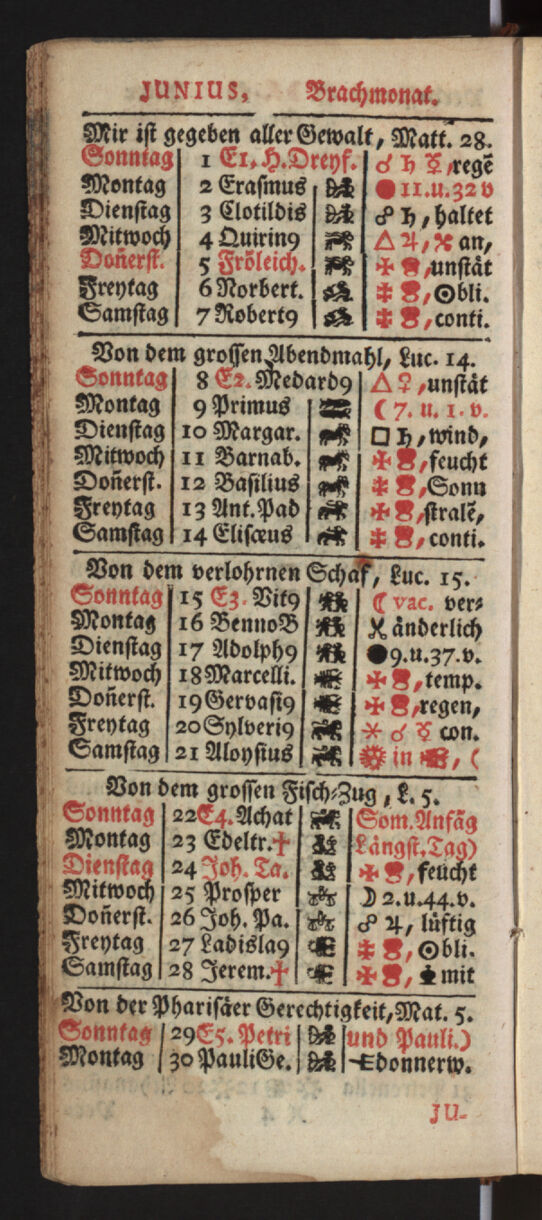 JUNIUS, Brachmonat.
Mir ist gegeben aller Gewalt, Matt. 28.
Sonntag 1 E1. H. Dreyf. ☌ ♄ ☿, regē
Montag 2 Erasmus 11. u. 32 v
Dienstag 3 Clotildis ☍ ♄, haltet
Mitwoch 4 Quirin9 △ ♃, an,
Doñerst. 5 Fröleich. unstät
Freytag 6 Norbert. ☉bli.
Samstag 7 Robert9 conti.
Von dem grossen Abendmahl, Luc. 14.
Sonntag 8 E2. Medard9 △ ♀, unstät
Montag 9 Primus ☾ 7. u. 1. v.
Dienstag 10 Margar. □ ♄, wind,
Mitwoch 11 Barnab. feucht
Doñerst. 12 Basilius Sonn
Freytag 13 Ant. Pad stralē,
Samstag 14 Elisœus conti.
Von dem verlohrnen Schaf, Luc. 15.
Sonntag 15 E3. Vit9 ☾ vac. ver⸗
Montag 16 Benno B änderlich
Dienstag 17 Adolph9 ● 9. u. 37. v.
Mitwoch 18 Marcelli. temp.
Doñerst. 19 Gervasi9 regen,
Freytag 20 Sylveri9 ⚹ ☌ ☿ con.
Samstag 21 Aloysius in , (
Von dem grossen Fisch⸗Zug, L. 5.
Sonntag 22 E4. Achat Som. Anfäg
Montag 23 Edeltr. † Längst. Tag)
Dienstag 24 Joh. Ta. feucht
Mitwoch 25 Prosper ☽ 2. u. 44. v.
Doñerst. 26 Joh. Pa. ☍ ♃, lüftig
Freytag 27 Ladisla9 ☉bli.
Samstag 28 Jerem. † mit
Von der Pharisäer Gerechtigkeit, Mat. 5.
Sonntag 29 E5. Petri und Pauli.)
Montag 30 Pauli Ge. donnerw.
JU-